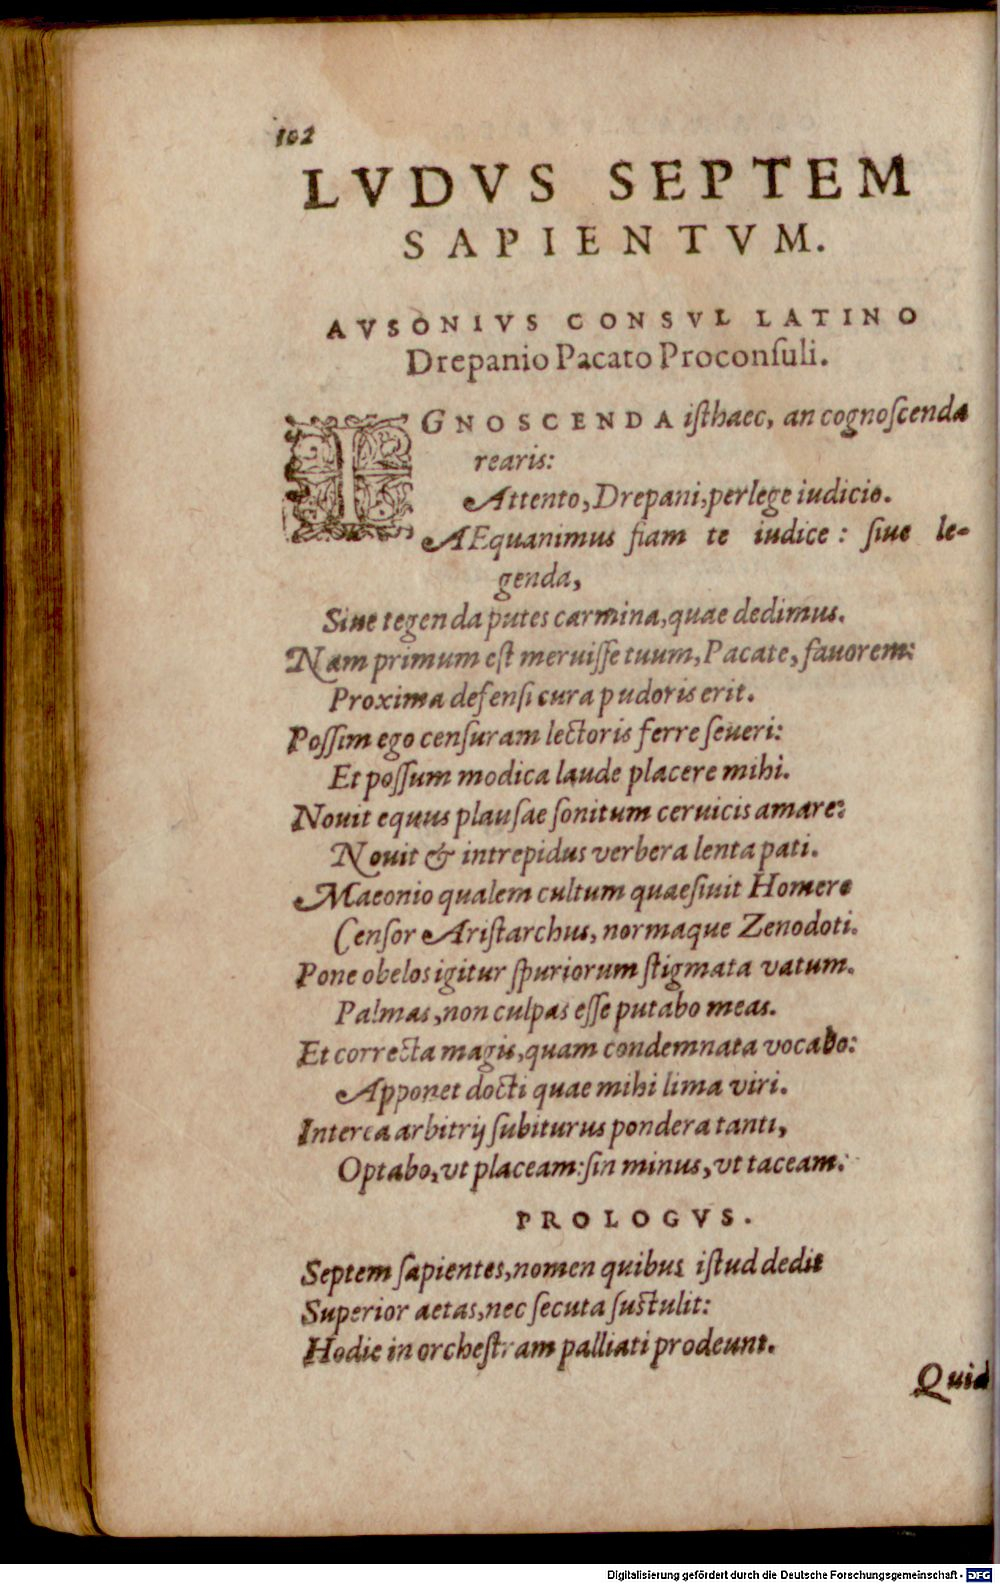 102
LVDVS SEPTEM
SAPIENTVM.
AVSONIVS CONSVL LATINO
Drepanio Pacato Proconſuli.
IGNOSCENDA iſthaec, an cognoſcenda
rearis:
Attento, Drepani, perlege iudicio.
AEquanimus fiam te iudice: ſiue le-
genda,
Siue tegenda putes carmina, quae dedimus.
Nam primum eſt meruiſſe tuum, Pacate, fauorem:
Proxima defenſi cura pudoris erit.
Poſſim ego cenſuram lectoris ferre ſeueri:
Et poſſum modica laude placere mihi.
Nouit equus plauſae ſonitum ceruicis amare:
Nouit & intrepidus verbera lenta pati.
Maeonio qualem cultum quaeſiuit Homero
Cenſor Ariſtarchus, normaque Zenodoti.
Pone obelos igitur ſpuriorum ſtigmata vatum.
Palmas, non culpas eſſe putabo meas.
Et correcta magis, quam condemnata vocabo:
Apponet docti quae mihi lima viri.
Interea arbitrij ſubiturus pondera tanti,
Optabo, vt placeam: ſin minus, vt taceam.
PROLOGVS.
Septem ſapientes, nomen quibus iſtud dedit
Superior aetas, nec ſecuta ſuſtulit:
Hodie in orcheſtram palliati prodeunt.
Quid
Digitalisierung gefördert durch die Deutsche Forschungsgemeinschaft - DFG